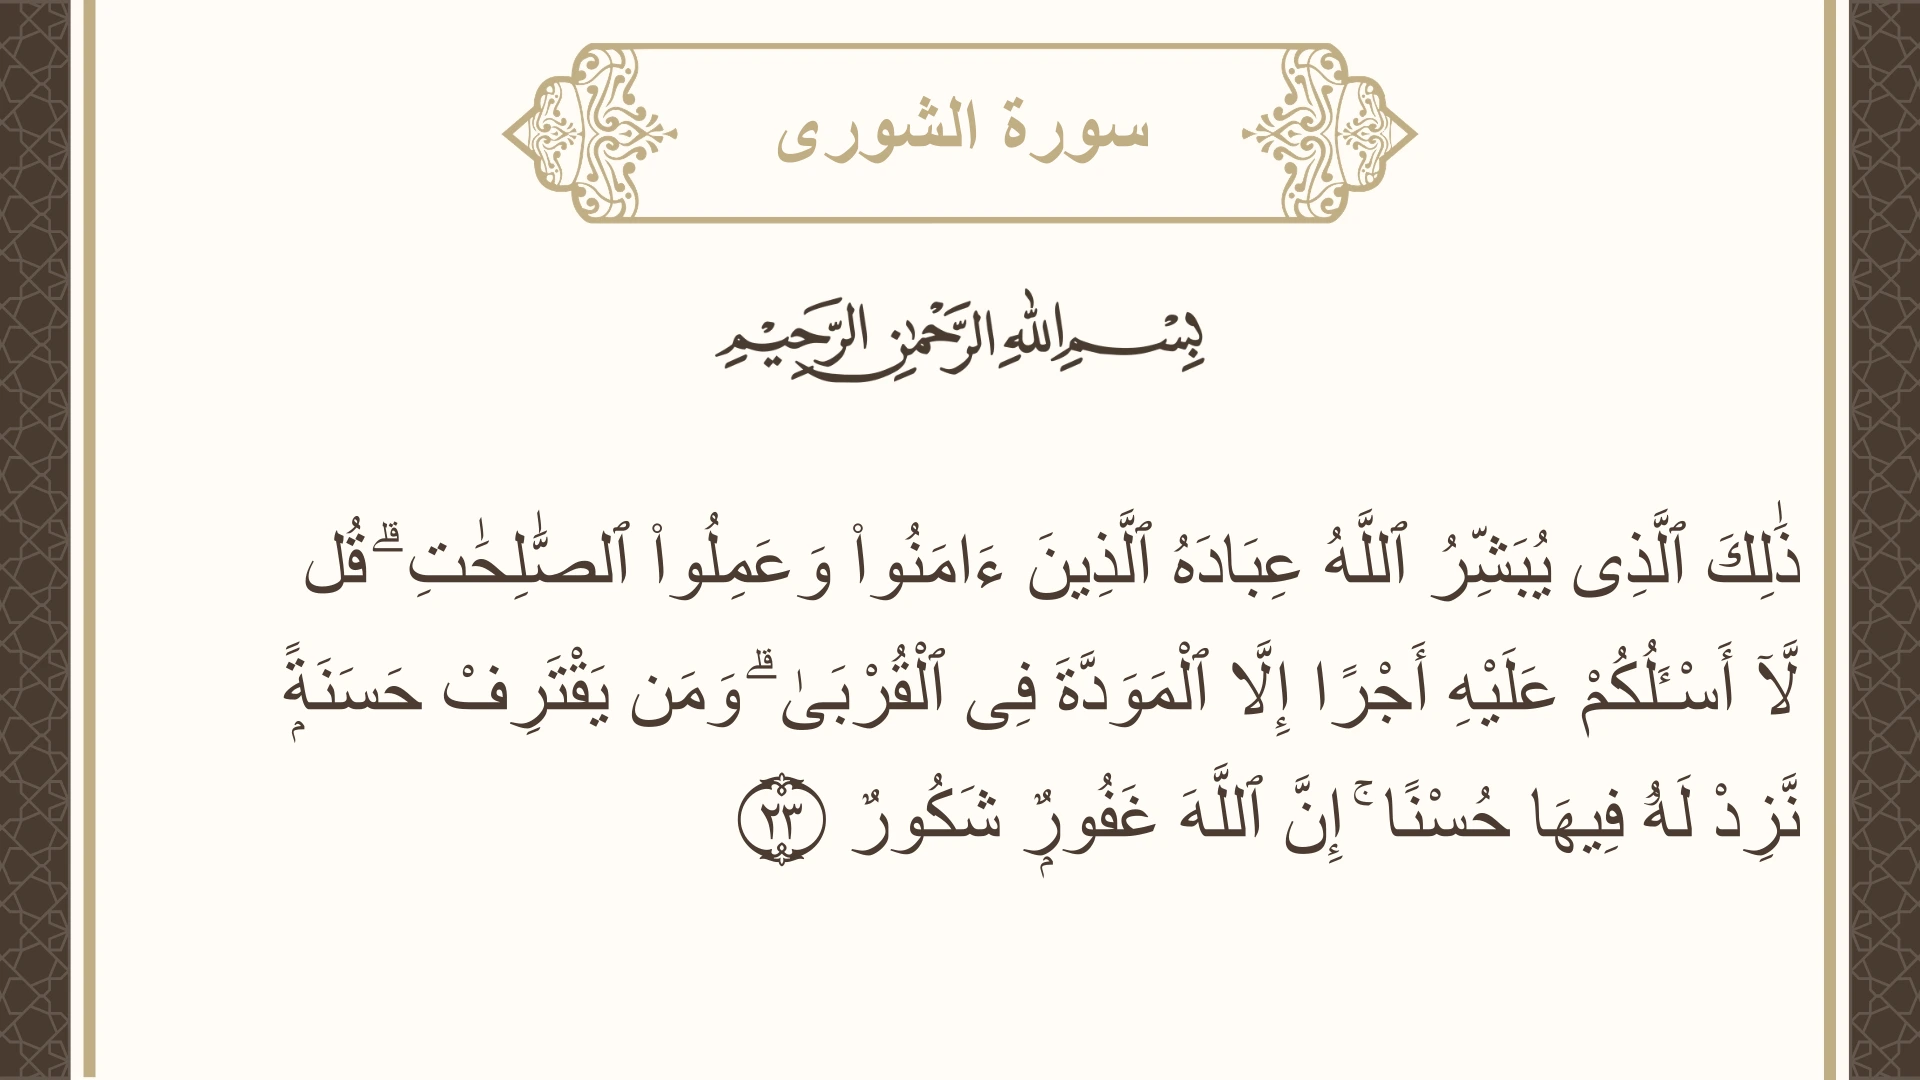 سورة الشورى
بِسْمِ اللهِ الرَّحْمٰنِ الرَّحِيْمِ
ذَٰلِكَ ٱلَّذِى يُبَشِّرُ ٱللَّهُ عِبَادَهُ ٱلَّذِينَ ءَامَنُوا۟ وَعَمِلُوا۟ ٱلصَّٰلِحَٰتِ ۗ قُل
لَّآ أَسْـَٔلُكُمْ عَلَيْهِ أَجْرًا إِلَّا ٱلْمَوَدَّةَ فِى ٱلْقُرْبَىٰ ۗ وَمَن يَقْتَرِفْ حَسَنَةًۭ
نَّزِدْ لَهُۥ فِيهَا حُسْنًا ۚ إِنَّ ٱللَّهَ غَفُورٌۭ شَكُورٌ ٢٣